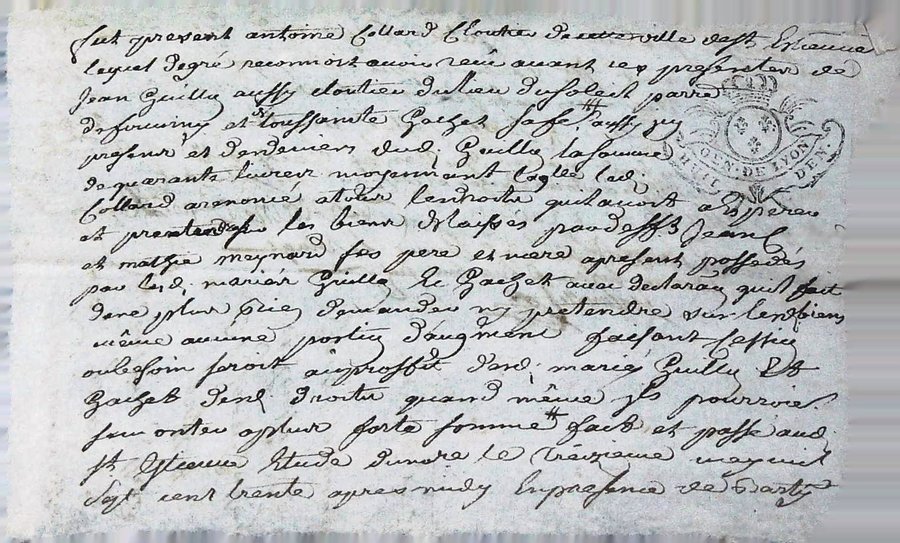 fut present antoine Collard Cloutier de cette ville de st Estienne
lequel de gré reconnoit avoir reçu avant ces presentes de
Jean Guilly aussy cloutier du lieu du soleil parre
de firminy et toussainte Gachet sa fe aussy
present et des deniers dud. Guilly la somme
de quarante livres moyennant laqlle led.
Collard a renoncé a tous les droits quil avoit a esperer
et pretendre sur les biens delaissés par deffts Jean
et mathie meynard ses pere et mere apresent possedés
par lesd. mariés Guilly et Gachet avec declaraon quil
de ne plus rien demander ny pretendre sur lesd. biens
même aucune portion d'augment faisant cession
ou besoin seroit au proffit desd. mariés Guilly et
Gachet desd. droits quand même ils pourroient
se monter a plus forte somme fait et passé aud.
st Estienne Etude du nore le treizieme may mil
sept cent trente apres midy En presence de
GEN. DE LYON
HUIT DEN.